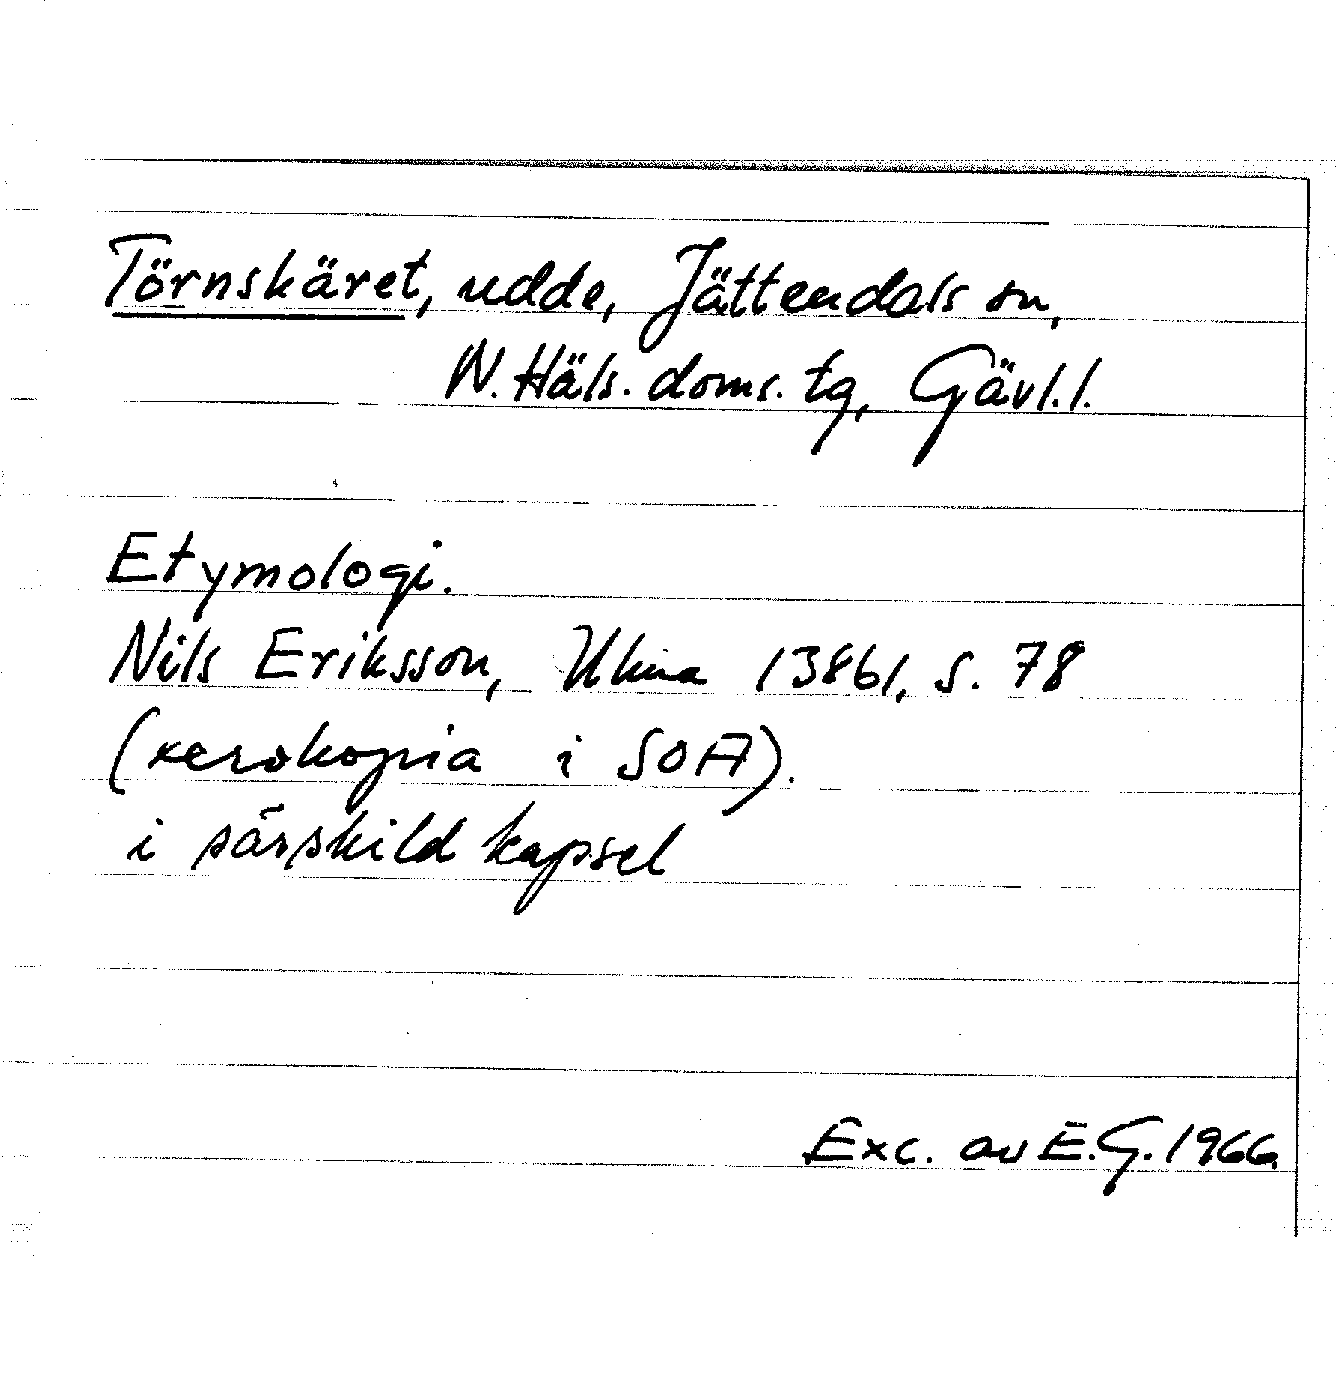 Törnskäret, udde, Jättendals sn,
N. Häls. doms. tg, Gävl. l.
Etymologi.
Nils Eriksson, Ulma 13861, s. 78
(xerokopia i SOA).
i särskild kapsel
Exc. av E.G. 1966